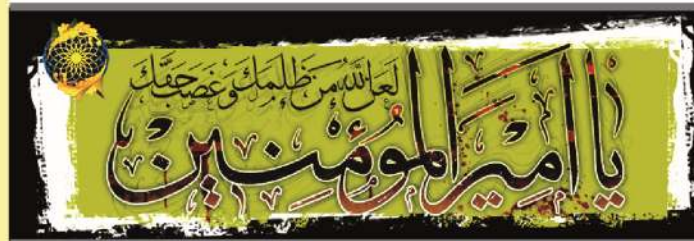 لعن الله من ظلمك وغصب حقك
يا امير المؤمنين